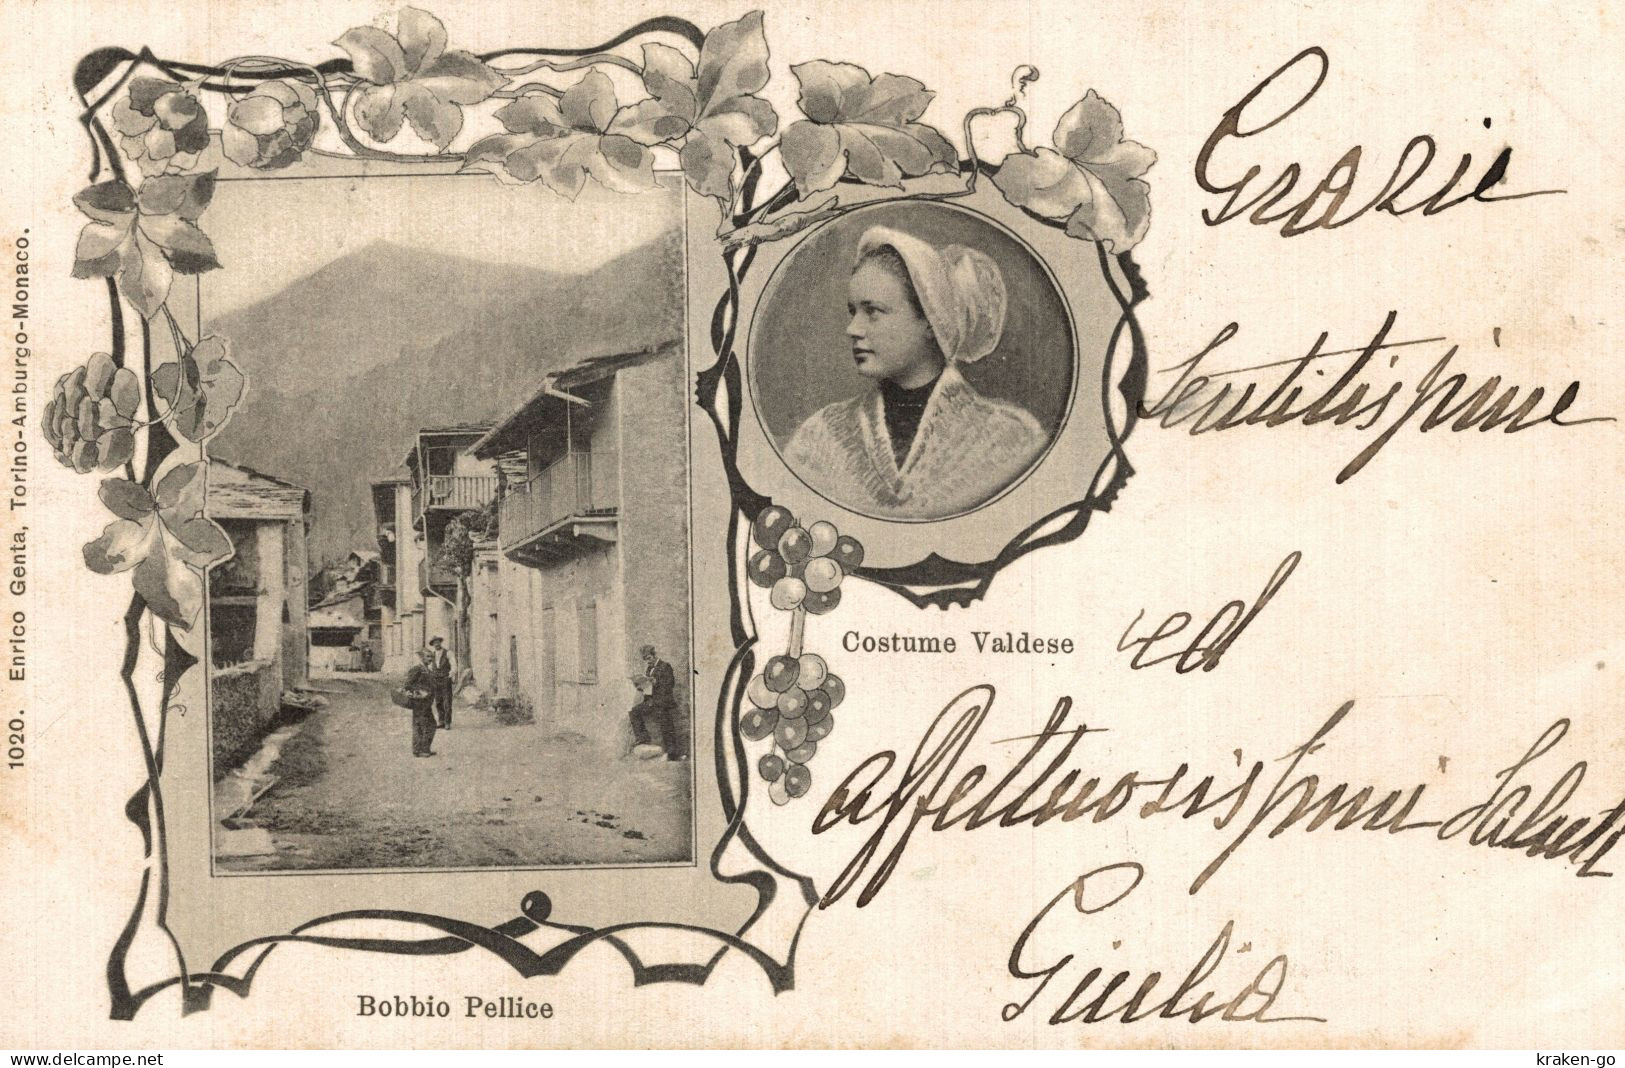 1020. Enrico Genta, Torino-Amburgo-Monaco.
Bobbio Pellice
Costume Valdese
Grazie
Sentitissime
ed
affettuosissimi Saluti
Giulia
delcampe.net
kraken-go